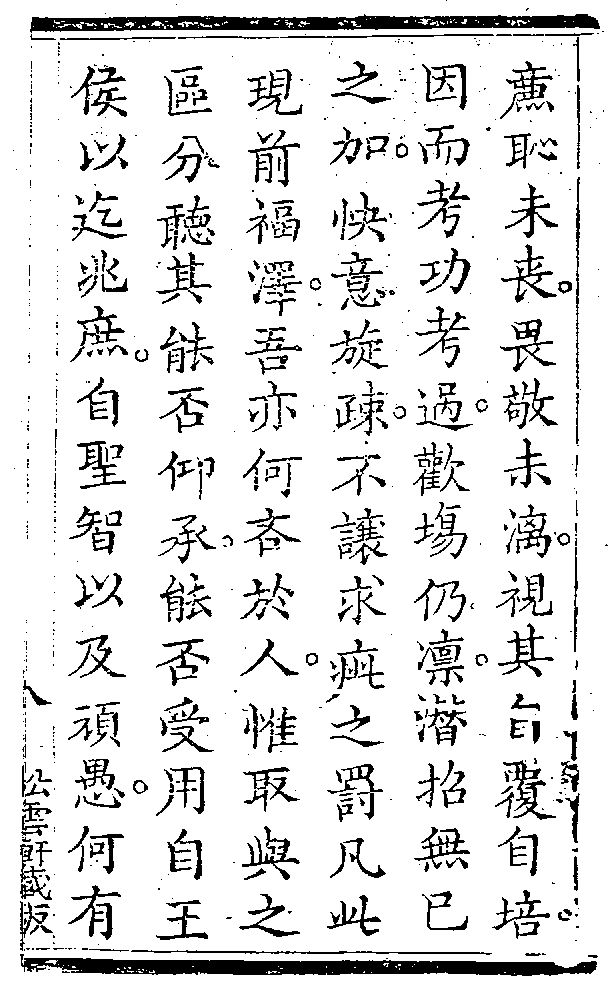 廉恥未喪。畏敬未漓。視其自覆自培。
因而考功考過。歡塲仍凛。潛招無已
之加。快意旋疎。不讓求疵之罰凡此
現前福澤。吾亦何吝於人。惟取與之
區分聽其能否仰承。能否受用自王
侯以迄兆庶。自聖智以及頑愚。何有
八
雲軒藏板